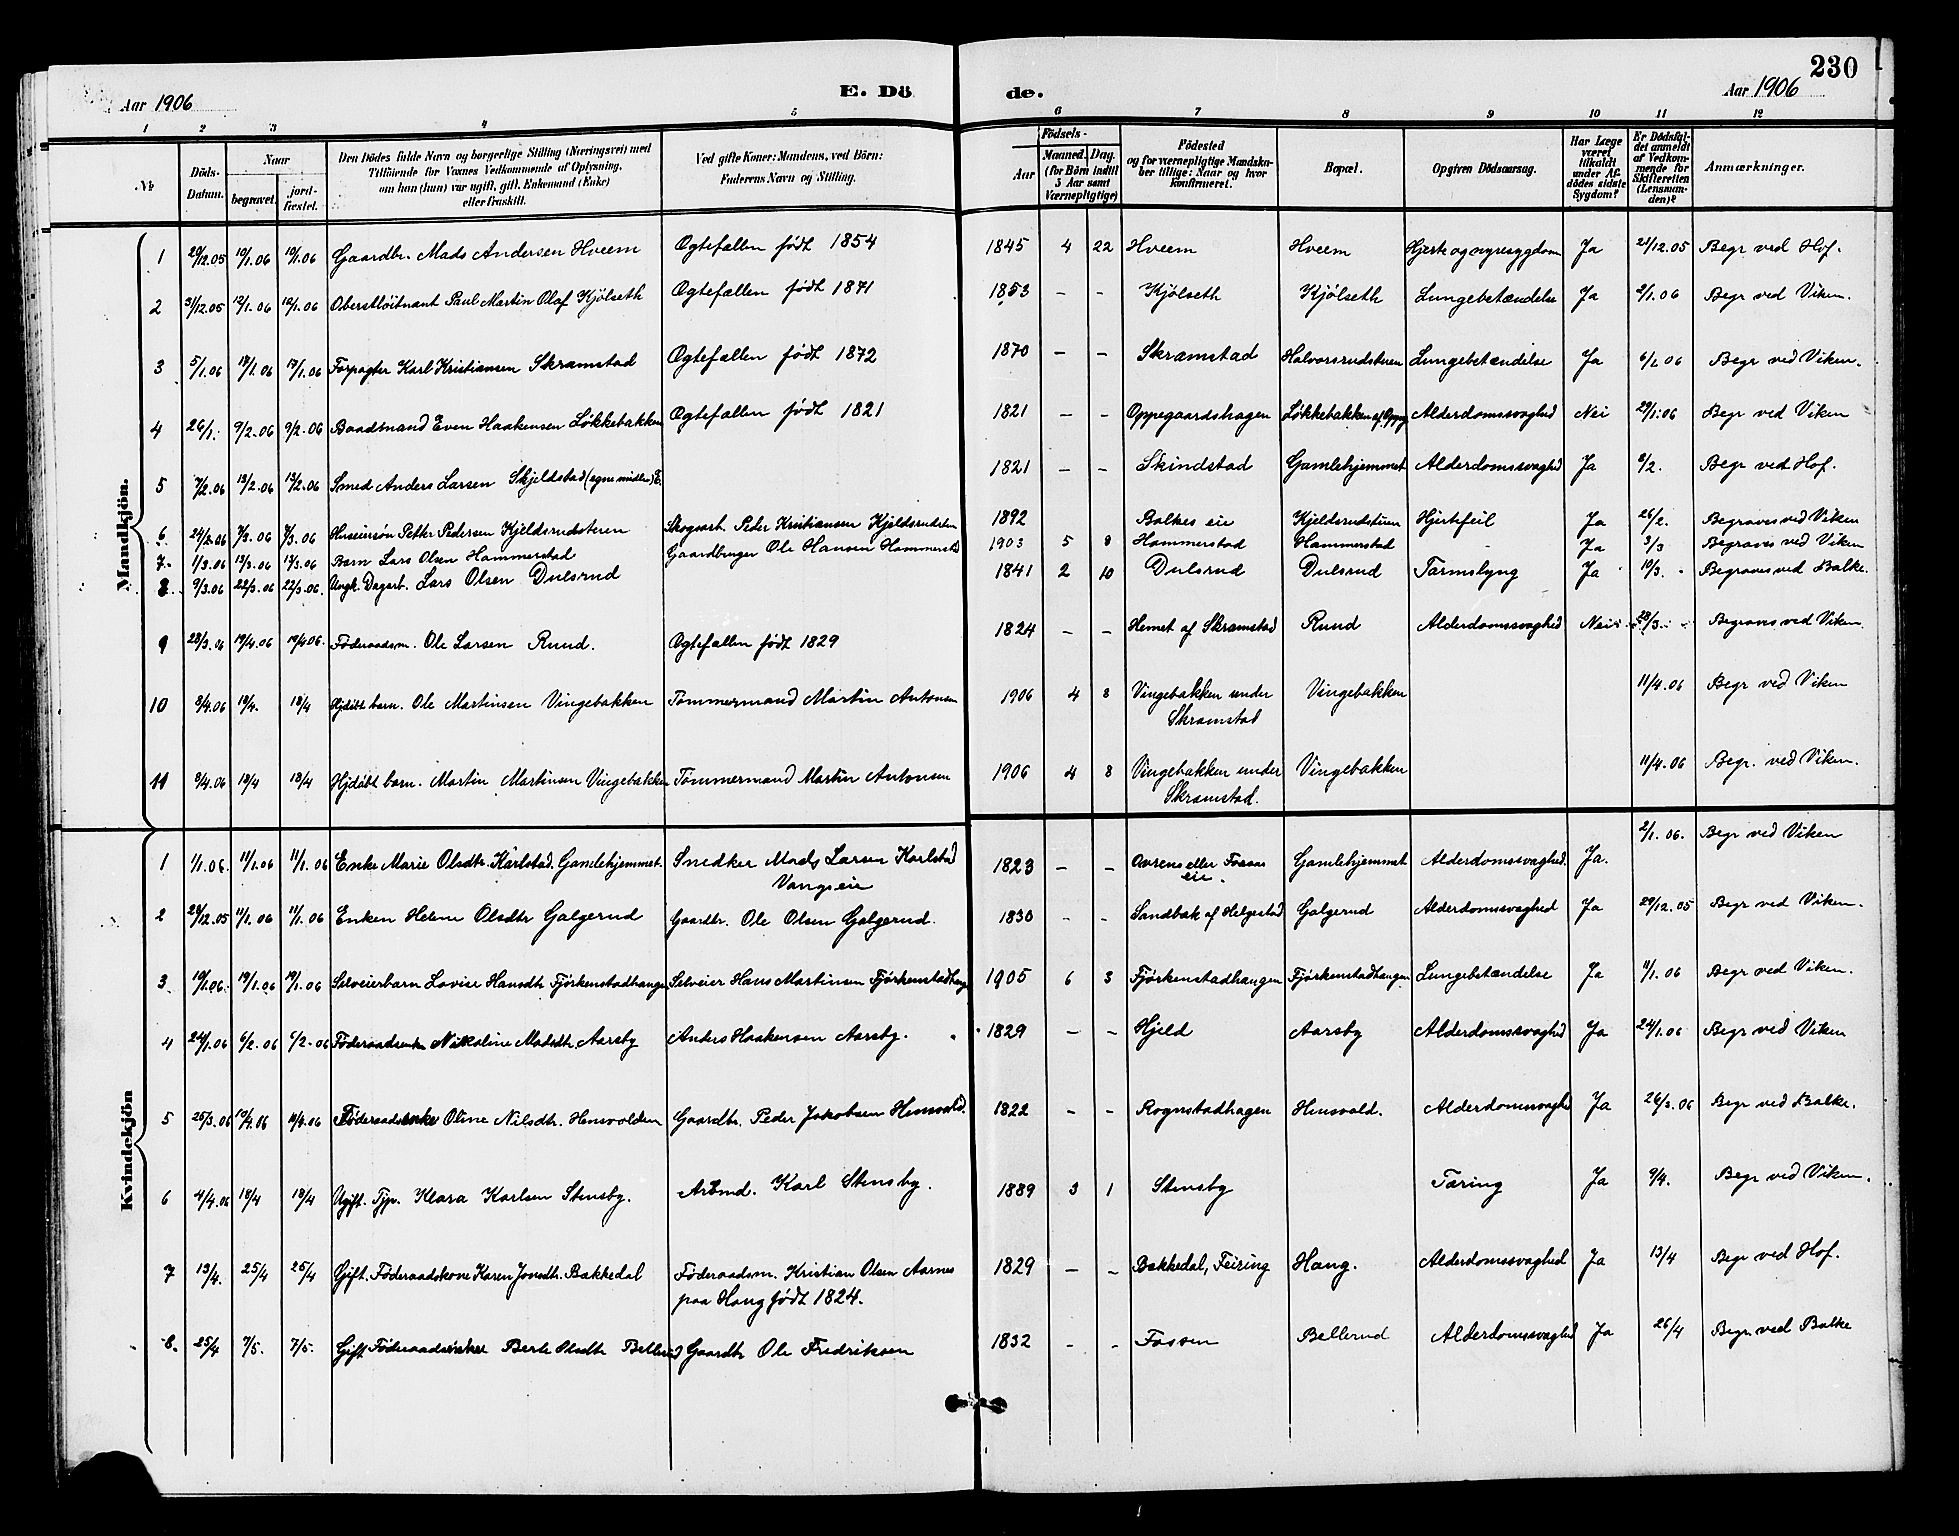 230
Aar 1906 E. Dö de. Aar 1906
1 2 3 4 5 6 7 8 9 10 11 12
№
Döds-Datum.
Naar
begravet.
jord-fæstet.
Den Dödes fulde Navn og borgerlige Stilling (Næringsvei) med
Tilföiende for Voxnes Vedkommende af Oplysning,
om han (hun) var ugift, gift, Enkemand (Enke)
eller fraskilt.
Ved gifte Koner: Mandens, ved Börn:
Faderens Navn og Stilling.
Födsels-
Aar
Maaned. Dag.
(for Börn indtil
5 Aar samt
Værnepligtige)
Födested
og for værnepligtige Mandska-
ber tillige: Naar og hvor
konfirmeret.
Bopæl.
Opgiven Dödsaarsag.
Har Læge
været
tilkaldt
under Af-
dödes sidste
Sygdom?
Er Dödsfal-
det anmeldt
af Vedkom-
mende for
Skifteretten
(Lensman-
den)?
Anmærkninger.
Mandkjön.
1 29/12.05 10/1.06 10/1.06 Gaardbr. Mads Andersen Hveem Ogtefællen født 1854 1845 4 22 Hveem Hveem Hjerte og nyresygdom Ja 21/12.05 Begr ved Hof.
2 31/12.05 12/1.06 12/1.06 Oberstløitnant Paul Martin Olaf Kjølseth Ogtefællen født 1871 1853 - - Kjølseth Kjølseth Lungebetændelse Ja 2/1.06 Begr ved Viken.
3 5/1.06 17/1.06 17/1.06 Forpagter Karl Kristiansen Skramstad Ogtefællen født 1872 1870 - - Skramstad Halvorsrudstuen Lungebetændelse Ja 6/2 06 Begr ved Viken.
4 26/1. 9/2.06 9/2.06 Baadsmand Even Haakensen Løkkebakken Ogtefællen født 1821 1821 - - Oppegaardshagen Løkkebakken af Oppg Alderdomssvaghed Nei 29/1.06 Begr ved Viken
5 7/2.06 13/2.06 13/2.06 Smed Anders Larsen Skjeldstad (egne midler) E. 1821 - - Skindstad Gamlehjemmet Alderdomssvaghed Ja 8/2. Begr ved Hof.
6. 24/2.06 7/3.06 7/3.06 Huseiersøn Petter Pedersen Kjeldsrudstuen Skogsarb. Peder Kristiansen Kjeldsrudstuen 1892 Balkes eie Kjeldsrudstuen Hjertefeil Ja 26/2. Begraves ved Viken
7. 1/3.06 13/3.06 13/3.06 Barn Lars Olsen Hammerstad Gaardbruger Ole Hansen Hammerstad 1903 5 8 Hammerstad Hammerstad Ja 3/3 Begraves ved Viken
8. 9/3.06 22/3.06 22/3.06. Ungk. Dagarb. Lars Olsen Dulsrud 1841 2 10 Dulsrud Dulsrud Tarmslyng Ja 10/3. Begraves ved Balke.
9 28/3.06 19/4.06 19/4 06. Föderaadsm. Ole Larsen Ruud. Ogtefællen født 1829 1824 - - Hemet af Skramstad Ruud Alderdomssvaghed Nei 28/3. Begraves ved Viken.
10 8/4.06 18/4. 18/4 Hjdøbt barn. Ole Martinsen Vingebakken Tømmermand Martin Antonsen 1906 4 8 Vingebakken under Vingebakken 11/4.06 Begr ved Viken
Skramstad
11 8/4.06 18/4 18/4 Hjdøbt barn. Martin Martinsen Vingebakken Tømmermand Martin Antonsen 1906 4 8 Vingebakken under Vingebakken 11/4.06 Begr. ved Viken.
Skramstad.
Kvindekjön
1 1/1.06. 11/1.06 11/1.06 Enke Marie Olsdtr. Karlstad. Gamlehjemmet. Snedker Mads Larsen Karlstad 1823 - - Ovrens eller Fossas Gamlehjemmet Alderdomssvaghed. Ja. 2/1.06. Begr ved Viken
Vangs eie eie.
2 28/12.05 11/1.06 11/1.06 Enken Helene Olsdtr Galgerud Gaardbr. Ole Olsen Galgerud. 1830 - - Sandbak af Helgestad Galgerud Alderdomssvaghed Ja 29/12.05 Begr ved Viken.
3. 10/1.06. 19/1.06 19/1.06 Selveierbarn Lovise Hansdtr Fjørkenstadhaugen Selveier Hans Martinsen Fjørkenstadhaug 1905 6 3 Fjørkenstadhaugen Fjørkenstadhaugen Lungebetændelse Ja 11/1.06 Begr ved Viken.
4 24/1.06 6/2.06 6/2.06 Föderaadsenke Nikoline Madsdtr. Aarsby Anders Haakensen Aarsby. 1829 - - Hjeld Aarsby Alderdomssvaghed Ja 24/1.06 Begr ved Viken
5 25/3.06 10/4.06 10/4.06 Föderaadsenke Oline Nilsdtr. Hensvolden Gaardbr. Peder Jakobsen Hensvold. 1822 - - Rognstadhagen Hensvold. Alderdomssvaghed Ja 26/3.06 Begr ved Balke.
6 4/4.06 18/4 18/4 Ugift. Tjp. Klara Karlsen Stensby. Arbmd. Karl Stensby. 1889 3 1 Stensby Tæring Ja 9/4. Begr ved Viken.
7 13/4. 25/4 25/4 Gift. Föderaadskone Karen Jonsdtr. Bakkedal Föderaadsm. Kristian Olsen Aarnes 1829 - - Bakkedal, Feiring Haug. Alderdomssvaghed Ja 13/4 Begr ved Hof.
paa Haug født 1824.
8. 25/4 7/5. 7/5. Gift Föderaadsenke Berte Olsdtr Bellerud Gaardbr Ole Fredriksen 1832 - - Fossen Bellerud Alderdomssvaghed Ja 26/4 Begr. ved Balke